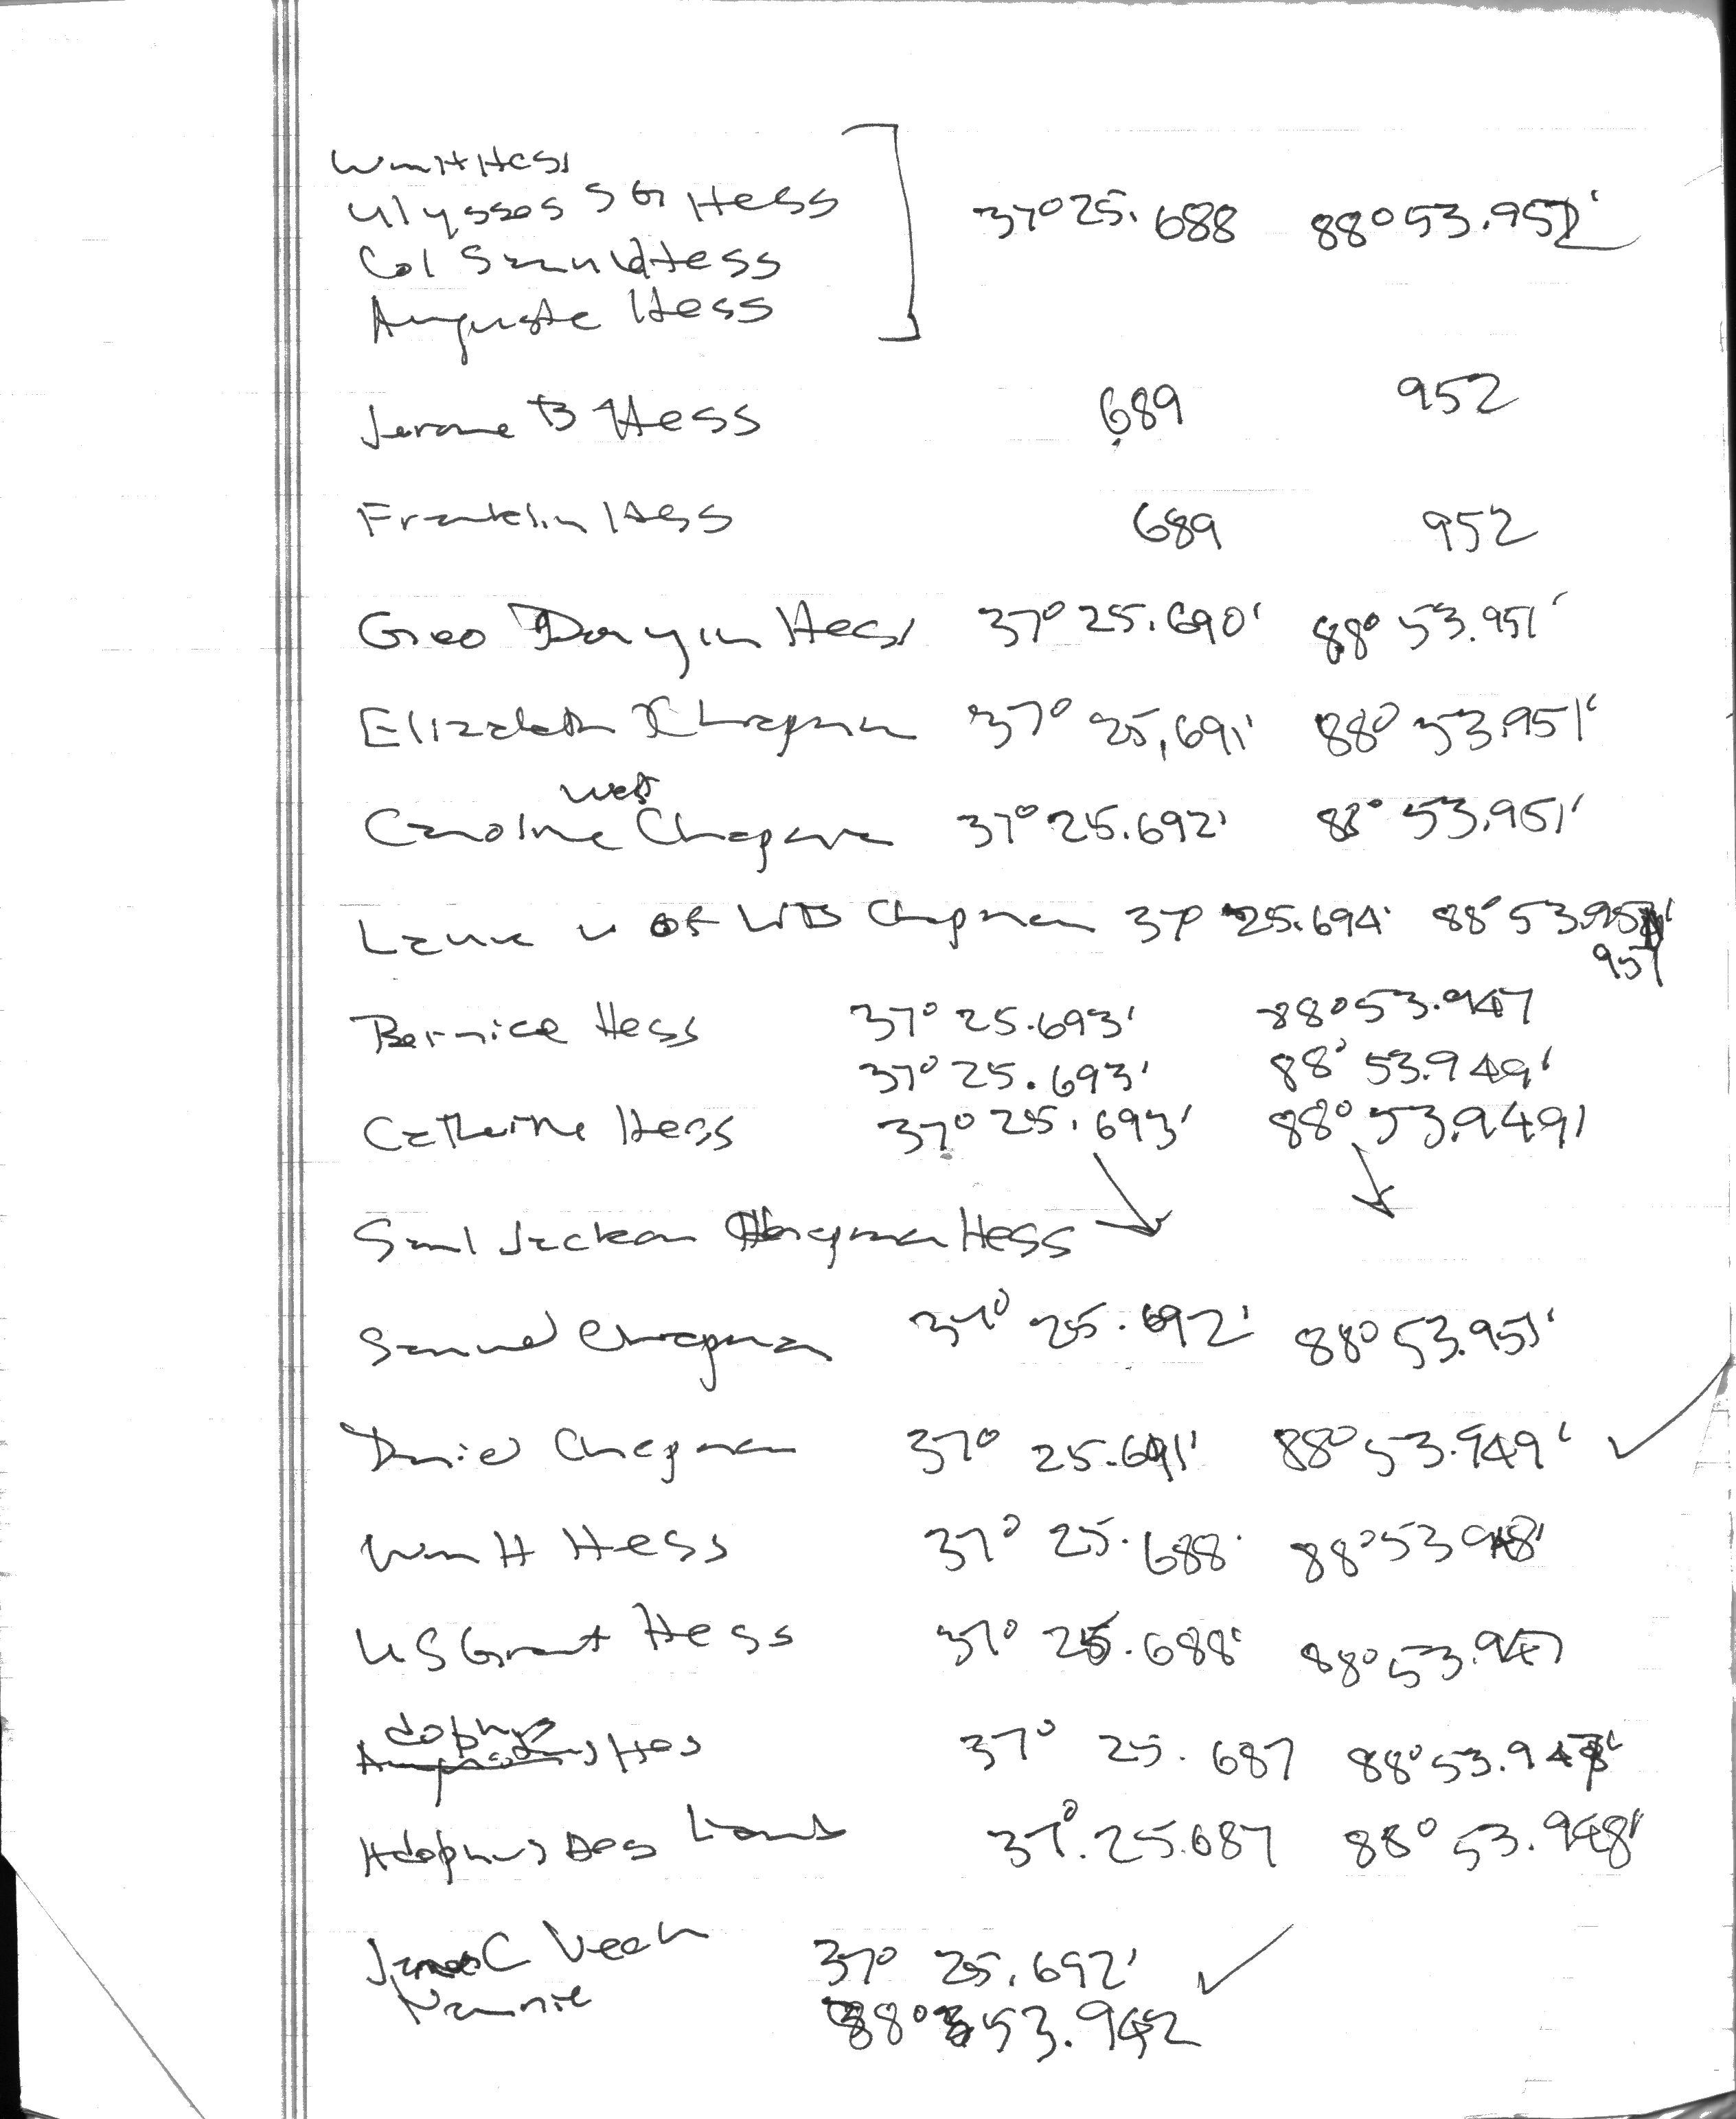 Wm H Hess
Ulysses S G Hess 37° 25.688 88° 53.952'
Col Hess
Auguste Hess
Jerome B Hess 689 952
Franklin Hess 689 952
Geo Hess 37° 25.690' 88° 53.951'
Elizabeth Chapman 37° 25.691' 88° 53.951'
West
Caroline Chapman 37° 25.692' 88° 53.951'
of Chapman 37° 25.694' 88° 53.951'
951
Bernice Hess 37° 25.693' 88° 53.947
37° 25.693' 88° 53.949'
Catherine Hess 37° 25.693' 88° 53.949'
Saml Jackson Hess
Samuel Chapman 37° 25.692' 88° 53.951'
Daniel Chapman 37° 25.691' 88° 53.949' ✓
Wm H Hess 37° 25.688' 88° 53 948'
US Grant Hess 37° 25.688' 88° 53.947
Hess 37° 25.687 88° 53.948'
Adophus 37° 25.687 88° 53.948'
James C Veach 37° 25.692' ✓
Nannie 88° 53.942